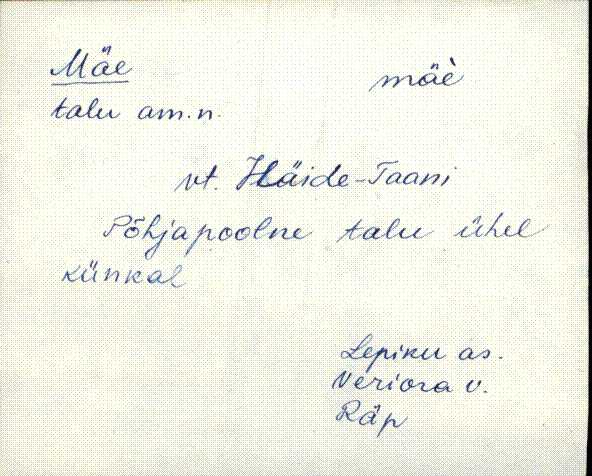 Mäe mäè
talu am.n.
vt. Häide-Taani
Põhjapoolne talu ühel
künkal
Lepiku as.
Veriora v.
Räp